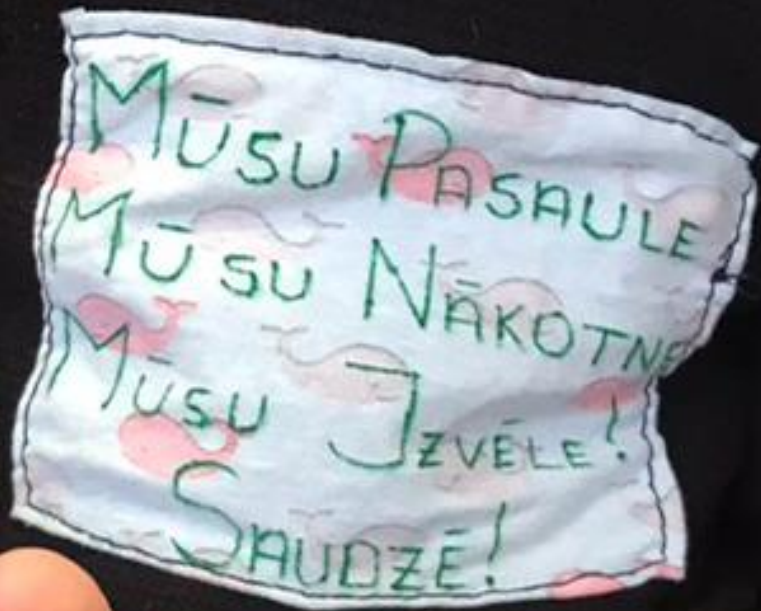 Mūsu Pasaule
Mūsu Nākotne
Mūsu Izvēle!
Saudzē!